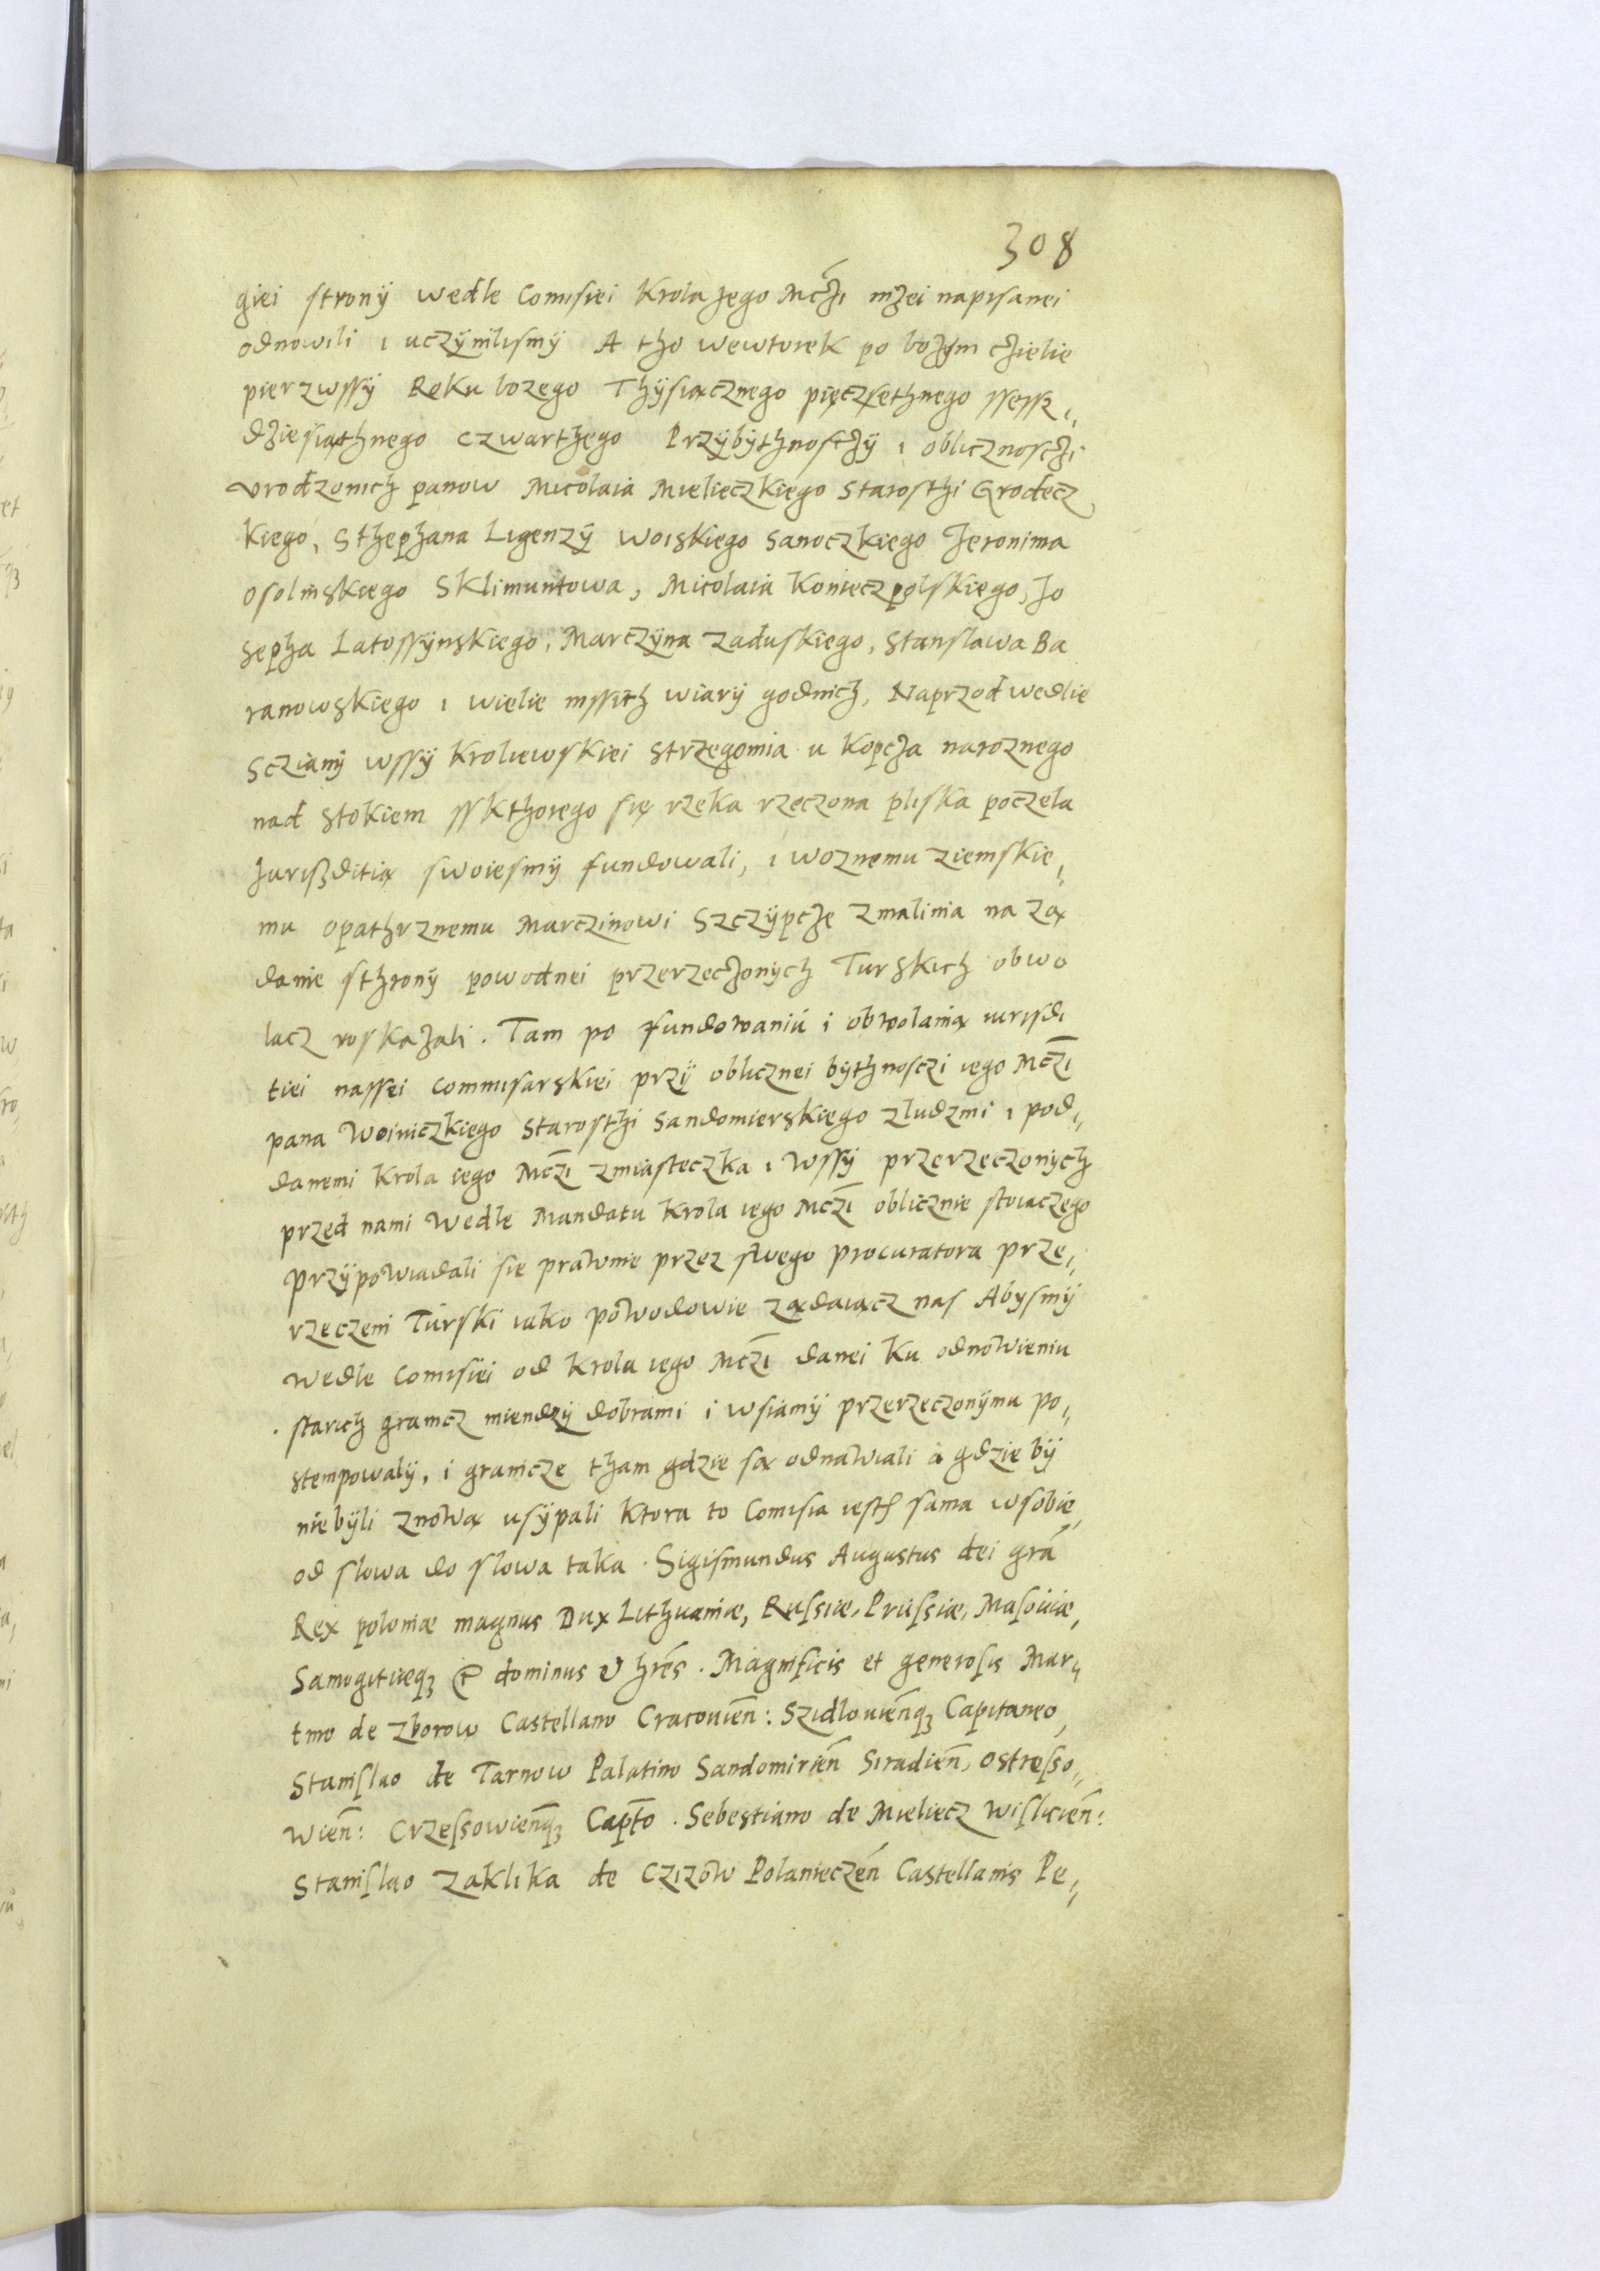 308
giei strony wedle Comisiei Krola Jego Mczi nizei napisanei
odnowili i uczynilismy A tho wewtorek po bozym czielie
pierzwssy Roku bozego Thysiącznego pięczsethnego ssessz„
dziesiąthnego czwarthego Przybythnosczy i oblicznosczi
vrodzonich panow Micolaia Mielieczkiego Starosthi Grodecz
kiego, Sthephana Ligenzy Woiskiego Sanoczkiego Jeronima
Osolinskiego Sklimuntowa, Micolaia Konieczpolskiego, Jo
sepha Latossynskiego, Marczyna Zaduskiego, Stanslawa Ba
ranowskiego i wielie inssich wiary godnich, Naprzod wedlie
Scziany wssy Kroliewskiei Strzegomia u Kopcza naroznego
nad Stokiem sskthorego się rzeka rzeczona pliska poczela
Juriszditią swoiesmy fundowali, i woznemu ziemskie„
mu opathrznemu Marczinowi Szczypcze zmalinia na ząx
danie sthrony powodnei przerzeczonych Turskich obwo
lacz roskazali. Tam po fundowaniu i obwolanią iurisdi
tiei nassei commisarskiei przy oblicznei bythnosczi iego Mczi
pana Woiniczkiego Starosthi Sandomierskiego zludzmi i pod„
danemi Krola iego Mczi zmiasteczka i wssy przerzeczonych
przed nami wedle Mandatu Krola iego Mczi oblicznie stoiaczego
przypowiadali sie prawnie przez swego procuratora prze„
rzeczeni Turski iako powodowie ządaiącz nas Abysmy
wedle Comisiei od Krola iego Mczi danei ku odnowieniu
starich granicz miendzy dobrami i wsiamy przerzeczonymu po„
stempowaly, i granicze tham gdzie są odnawiali a gdzie by
niebyli znową usypali Ktora to Comisia iesth sama wsobie
od slowa do slowa taka. Sigismundus Augustus dei gra
Rex poloniæ magnus Dux Lithuaniæ, Russiæ, Prussiæ, Masoviæ,
Samogitieq₃ etc dominus et hres. Magnificis et generosis Mar„
tino de Zborow Castellano Cracovien: Szidlovienq₃ Capitaneo,
Stanislao de Tarnow Palatino Sandomirien Siradien, Ostresso„
wien: Crzessowienq₃ Capto. Sebestiano de Mieliecz Wislicien:
Stanislao Zaklika de Czizow Polanieczen Castellanis Pe„